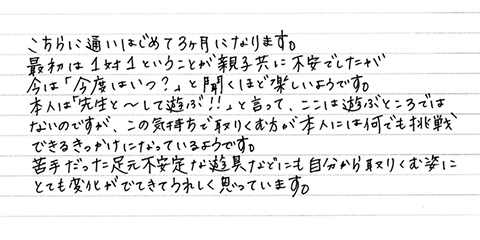 こちらに通いはじめて3ヶ月になります。
最初は1対1ということが親子共に不安でしたが
今は「今度はいつ?」と聞くほど楽しいようです。
本人は「先生と〜して遊ぶ!!」と言って、ここは遊ぶところでは
ないのですが、この気持ちで取りくむ方が本人には何でも挑戦
できるきっかけになっているようです。
苦手だった足元不安定な遊具などにも自分から取りくむ姿に
とても変化がでてきてうれしく思っています。